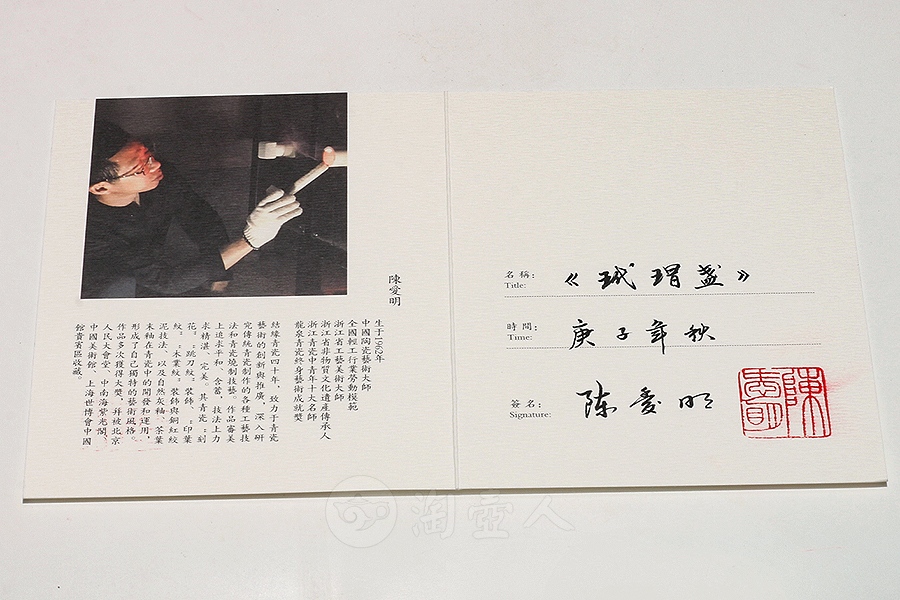 陳愛明
生于1962年
中國陶瓷藝術大師
全國輕工行業勞動模範
浙江省工藝美術大師
浙江省非物質文化遺產傳承人
浙江青瓷中青年十大名師
龍泉青瓷終身藝術成就獎
結緣青瓷四十年，致力于青瓷
藝術的創新與推廣，深入研
究傳統青瓷制作的各種工藝技
法和青瓷燒制技藝。作品審美
上追求平和、含蓄，技法上力
求精湛、完美。其青瓷“刻
花”“跳刀紋”裝飾、“印葉
紋”“木葉紋”裝飾與銅紅絞
泥技法、以及自然灰釉、茶葉
末釉在青瓷中的開發和運用，
形成了自己獨特的藝術風格。
作品多次獲得大獎，并被北京
人民大會堂、中南海紫光閣、
中國美術館、上海世博會中國
館貴賓區收藏。
名稱：
Title:
《玳瑁盞》
時間：
Time:
庚子年秋
簽名：
Signature:
陈爱明
陳愛明
淘壺人